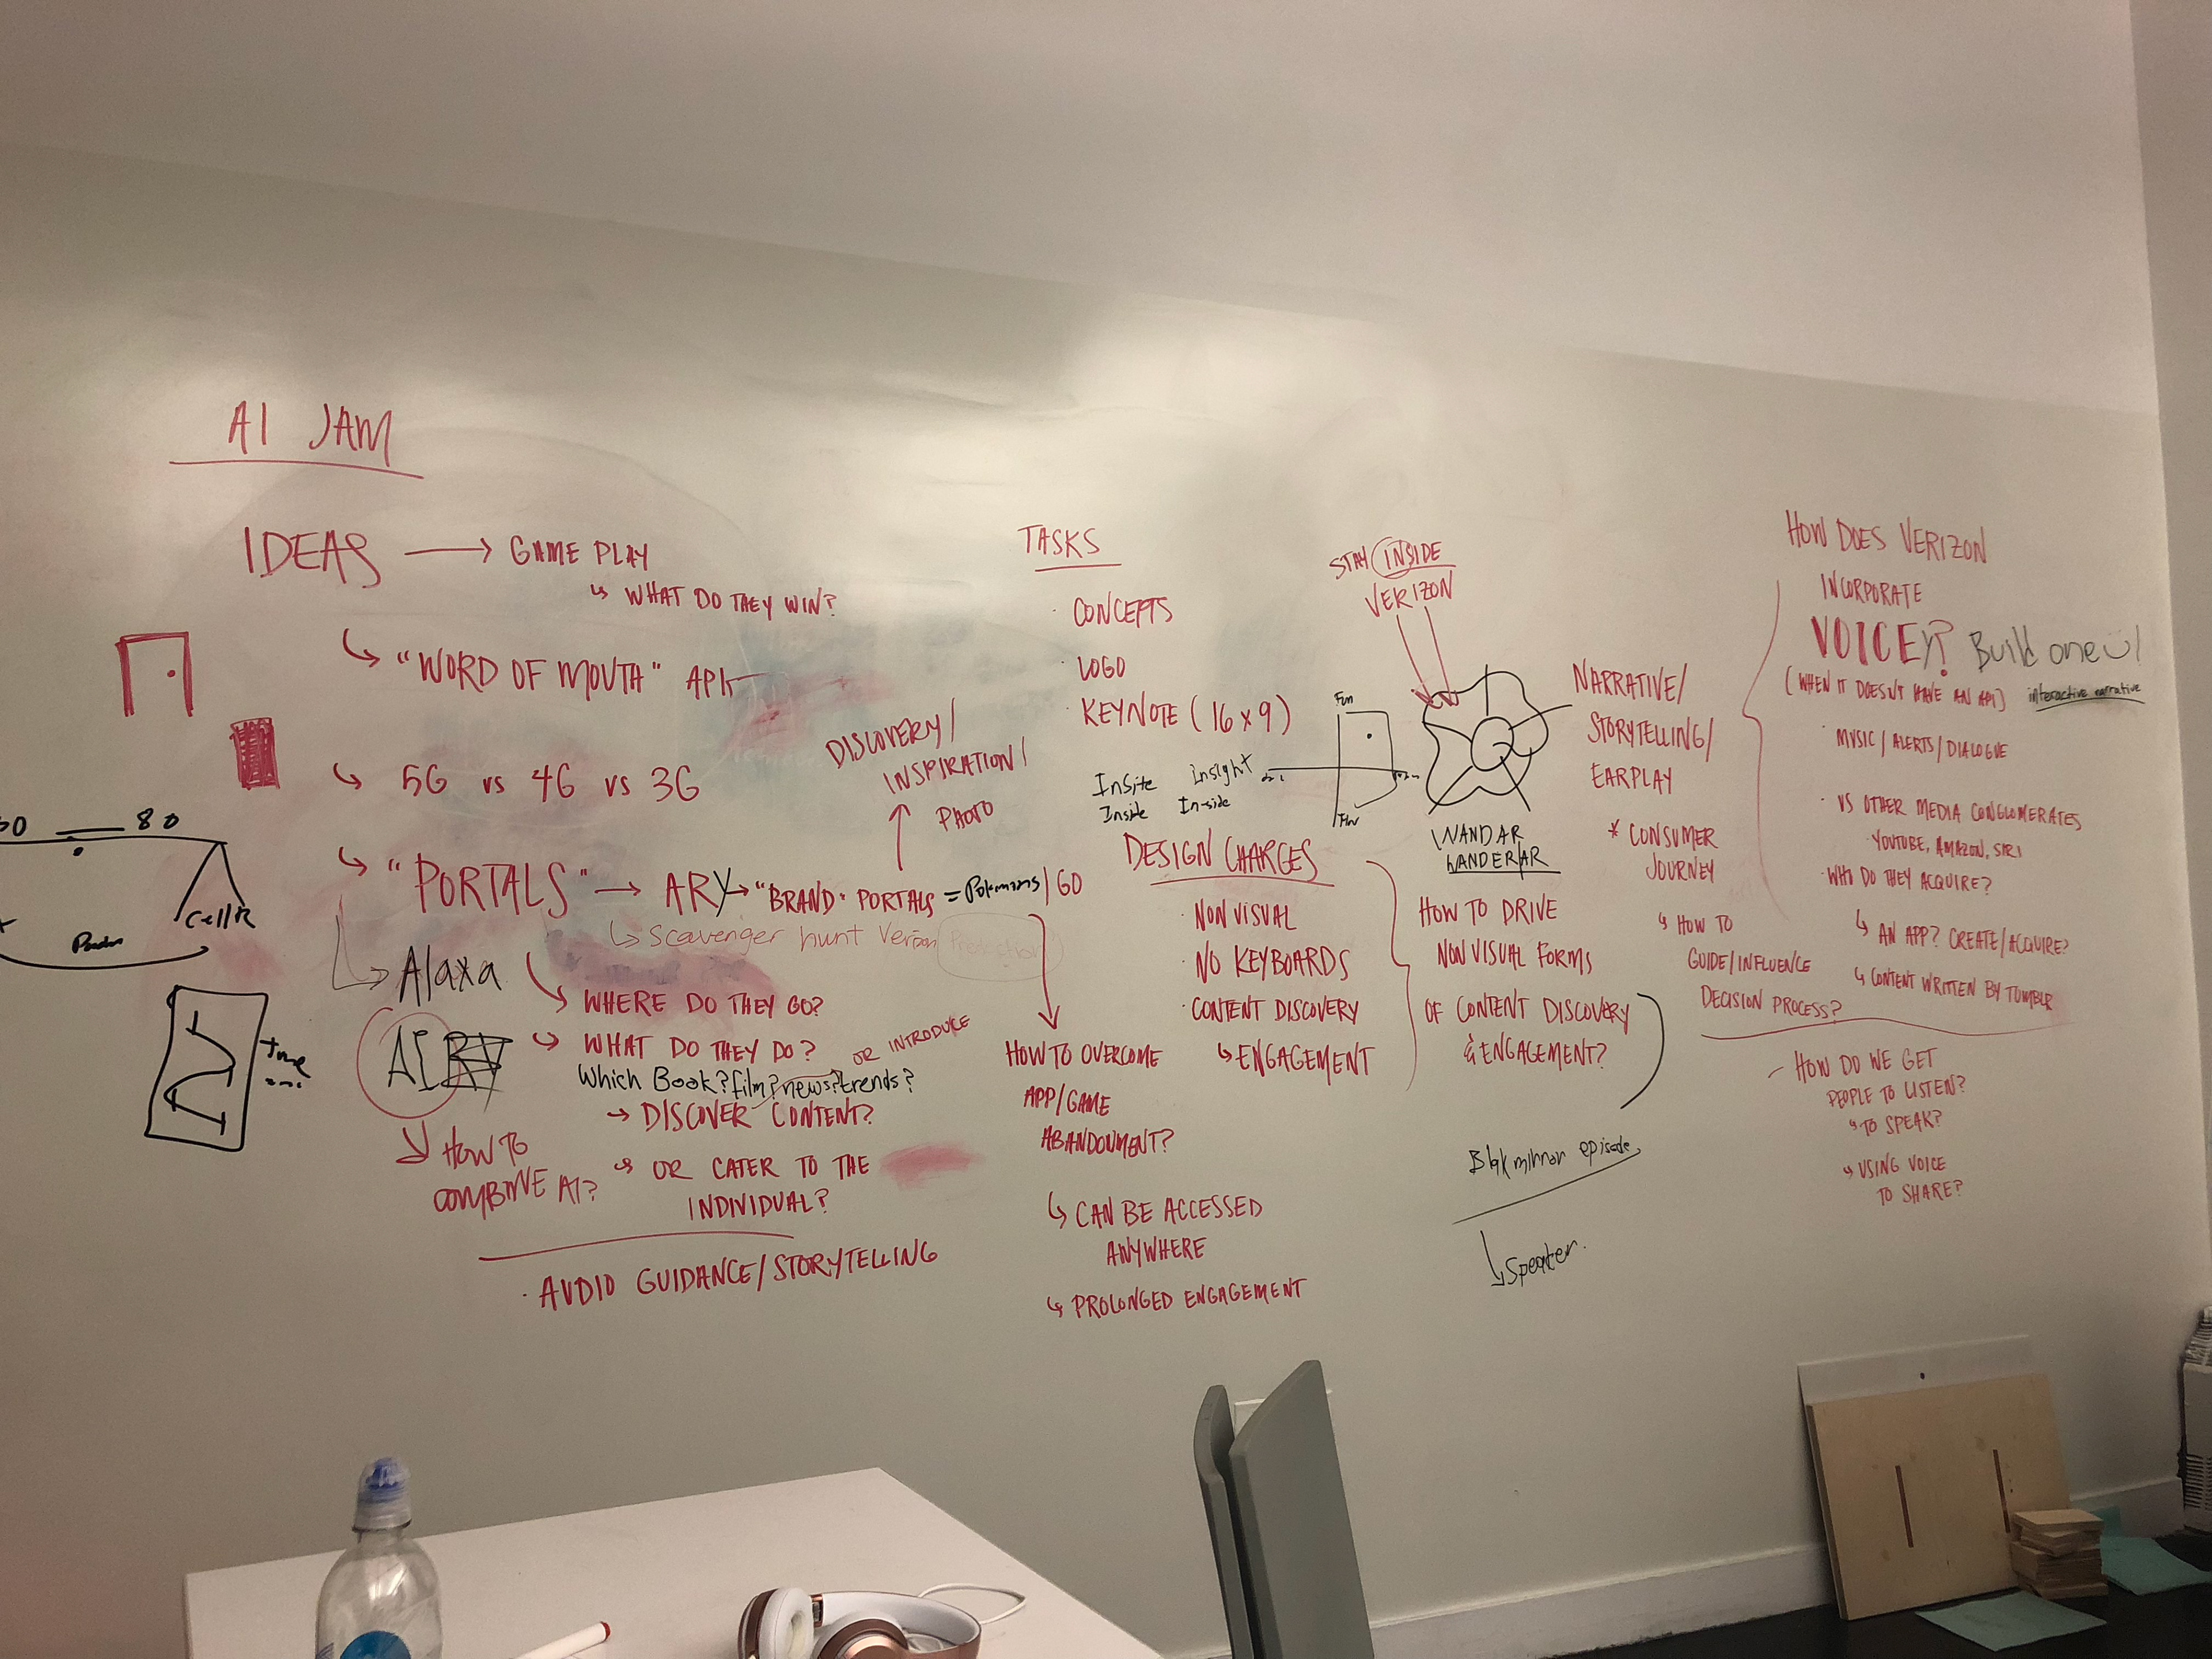 AI JAM
IDEAS → GAME PLAY
↳ WHAT DO THEY WIN?
↳ "WORD OF MOUTH" API
↳ 5G vs 4G vs 3G
↳ "PORTALS" → AR → "BRAND" PORTALS = /GO
DISCOVERY/
INSPIRATION/
PHOTO
↳ Scavenger hunt
→ Alaxa
↳ WHERE DO THEY GO?
AI
↳ WHAT DO THEY DO?
OR INTRODUCE
Which Book? film? news? trends?
→ DISCOVER CONTENT?
↳ OR CATER TO THE
INDIVIDUAL?
HOW TO
COMBINE AI?
· AUDIO GUIDANCE/STORYTELLING
80
time
HOW TO OVERCOME
APP/GAME
ABANDONMENT?
↳ CAN BE ACCESSED
ANYWHERE
↳ PROLONGED ENGAGEMENT
TASKS
· CONCEPTS
· LOGO
· KEYNOTE (16 x 9)
InSite Insight
Inside In-side
DESIGN CHARGES
· NON VISUAL
· NO KEYBOARDS
· CONTENT DISCOVERY
↳ ENGAGEMENT
STAY INSIDE
VERIZON
Fun
WANDAR
WANDERAR
HOW TO DRIVE
NON VISUAL FORMS
OF CONTENT DISCOVERY
& ENGAGEMENT?
episode
↳ Speaker.
NARRATIVE/
STORYTELLING/
EARPLAY
* CONSUMER
JOURNEY
↳ HOW TO
GUIDE/INFLUENCE
DECISION PROCESS?
HOW DOES VERIZON
INCORPORATE
VOICE? Build one
(WHEN IT DOESN'T HAVE AN API) interactive narrative
· MUSIC/ALERTS/DIALOGUE
· VS OTHER MEDIA CONGLOMERATES
· YOUTUBE, AMAZON, SIRI
· WHO DO THEY ACQUIRE?
↳ AN APP? CREATE/ACQUIRE?
↳ CONTENT WRITTEN BY TUMBLR
- HOW DO WE GET
PEOPLE TO LISTEN?
↳ TO SPEAK?
↳ USING VOICE
TO SHARE?